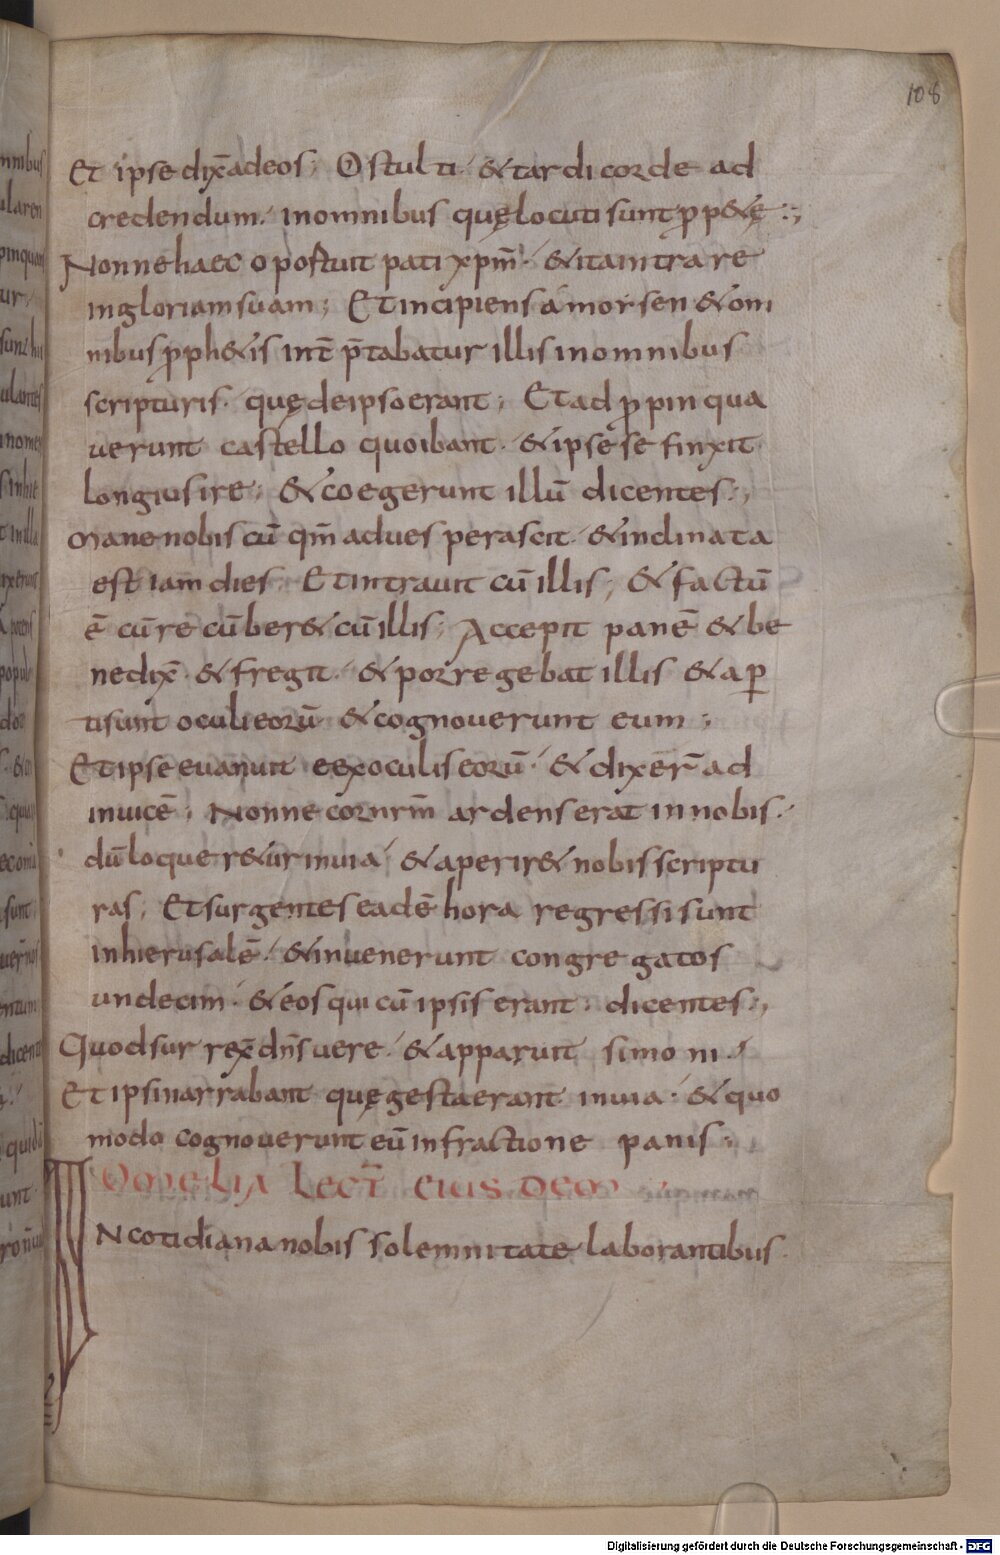 108
Et ipse dix̄ ad eos; O stulti · & tardi corde ad
credendum · in omnibus quę locuti sunt ꝓph&ę ·;
Nonne haec oportuit pati xp̄m · & ita intrare
in gloriam suam; Et incipiens a morsen & om
nibus ꝓph&is int̄ p̄tabatur illis in omnibus
scripturis · quę de ipso erant; Et ad ꝓpinqua
verunt castello quo ibant · & ipse se finxit
longius ire; & coegerunt illū dicentes ·;
Mane nobis cū qm̄ advesperascit · & inclinata
est iam dies · Et intravit cū illis; & factū
ē cū recūber& cū illis; Accepit panē & be
nedix̄ · & fregit · & porregebat illis & aꝑ
ti sunt oculi eorū · & cognoverunt eum ·;
Et ipse evanuit ex oculis eorū · & dixer̄ ad
invicē; Nonne cor nrm̄ ardens erat in nobis ·
dū loquer&ur in via · & aperir& nobis scriptu
ras; Et surgentes eadē hora regressi sunt
in hierusalē · & invenerunt congregatos
undecim · & eos qui cū ipsis erant · dicentes ·;
Quod surrex̄ dn̄s vere · & apparuit simoni ·
Et ipsi narrabant quę gesta erant in via · & quo
modo cognoverunt eū in fractione panis ·;
Omelia lect̄ eiusdem
IN cotidiana nobis solemnitate laborantibus ·
Digitalisierung gefördert durch die Deutsche Forschungsgemeinschaft - DFG